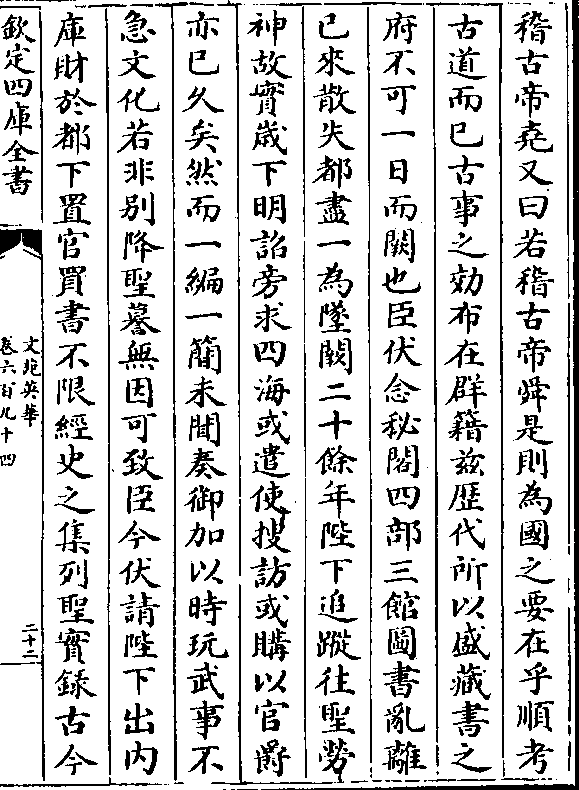 稽古帝堯又曰若稽古帝舜是則為國之要在乎順考
古道而已古事之効布在群籍兹歴代所以盛藏書之
府不可一日而闕也臣伏念秘閣四部三館圖書亂離
已來散失都盡一為墜闕二十餘年陛下追蹤往聖勞
神故實歳下明詔旁求四海或遣使搜訪或購以官爵
亦已久矣然而一編一簡未聞奏御加以時玩武事不
急文化若非別降聖謩無因可致臣今伏請陛下出内
庫財於都下置官買書不限經史之集列聖實録古今
欽定四庫全書
文苑英華
卷六百九十四
二十二